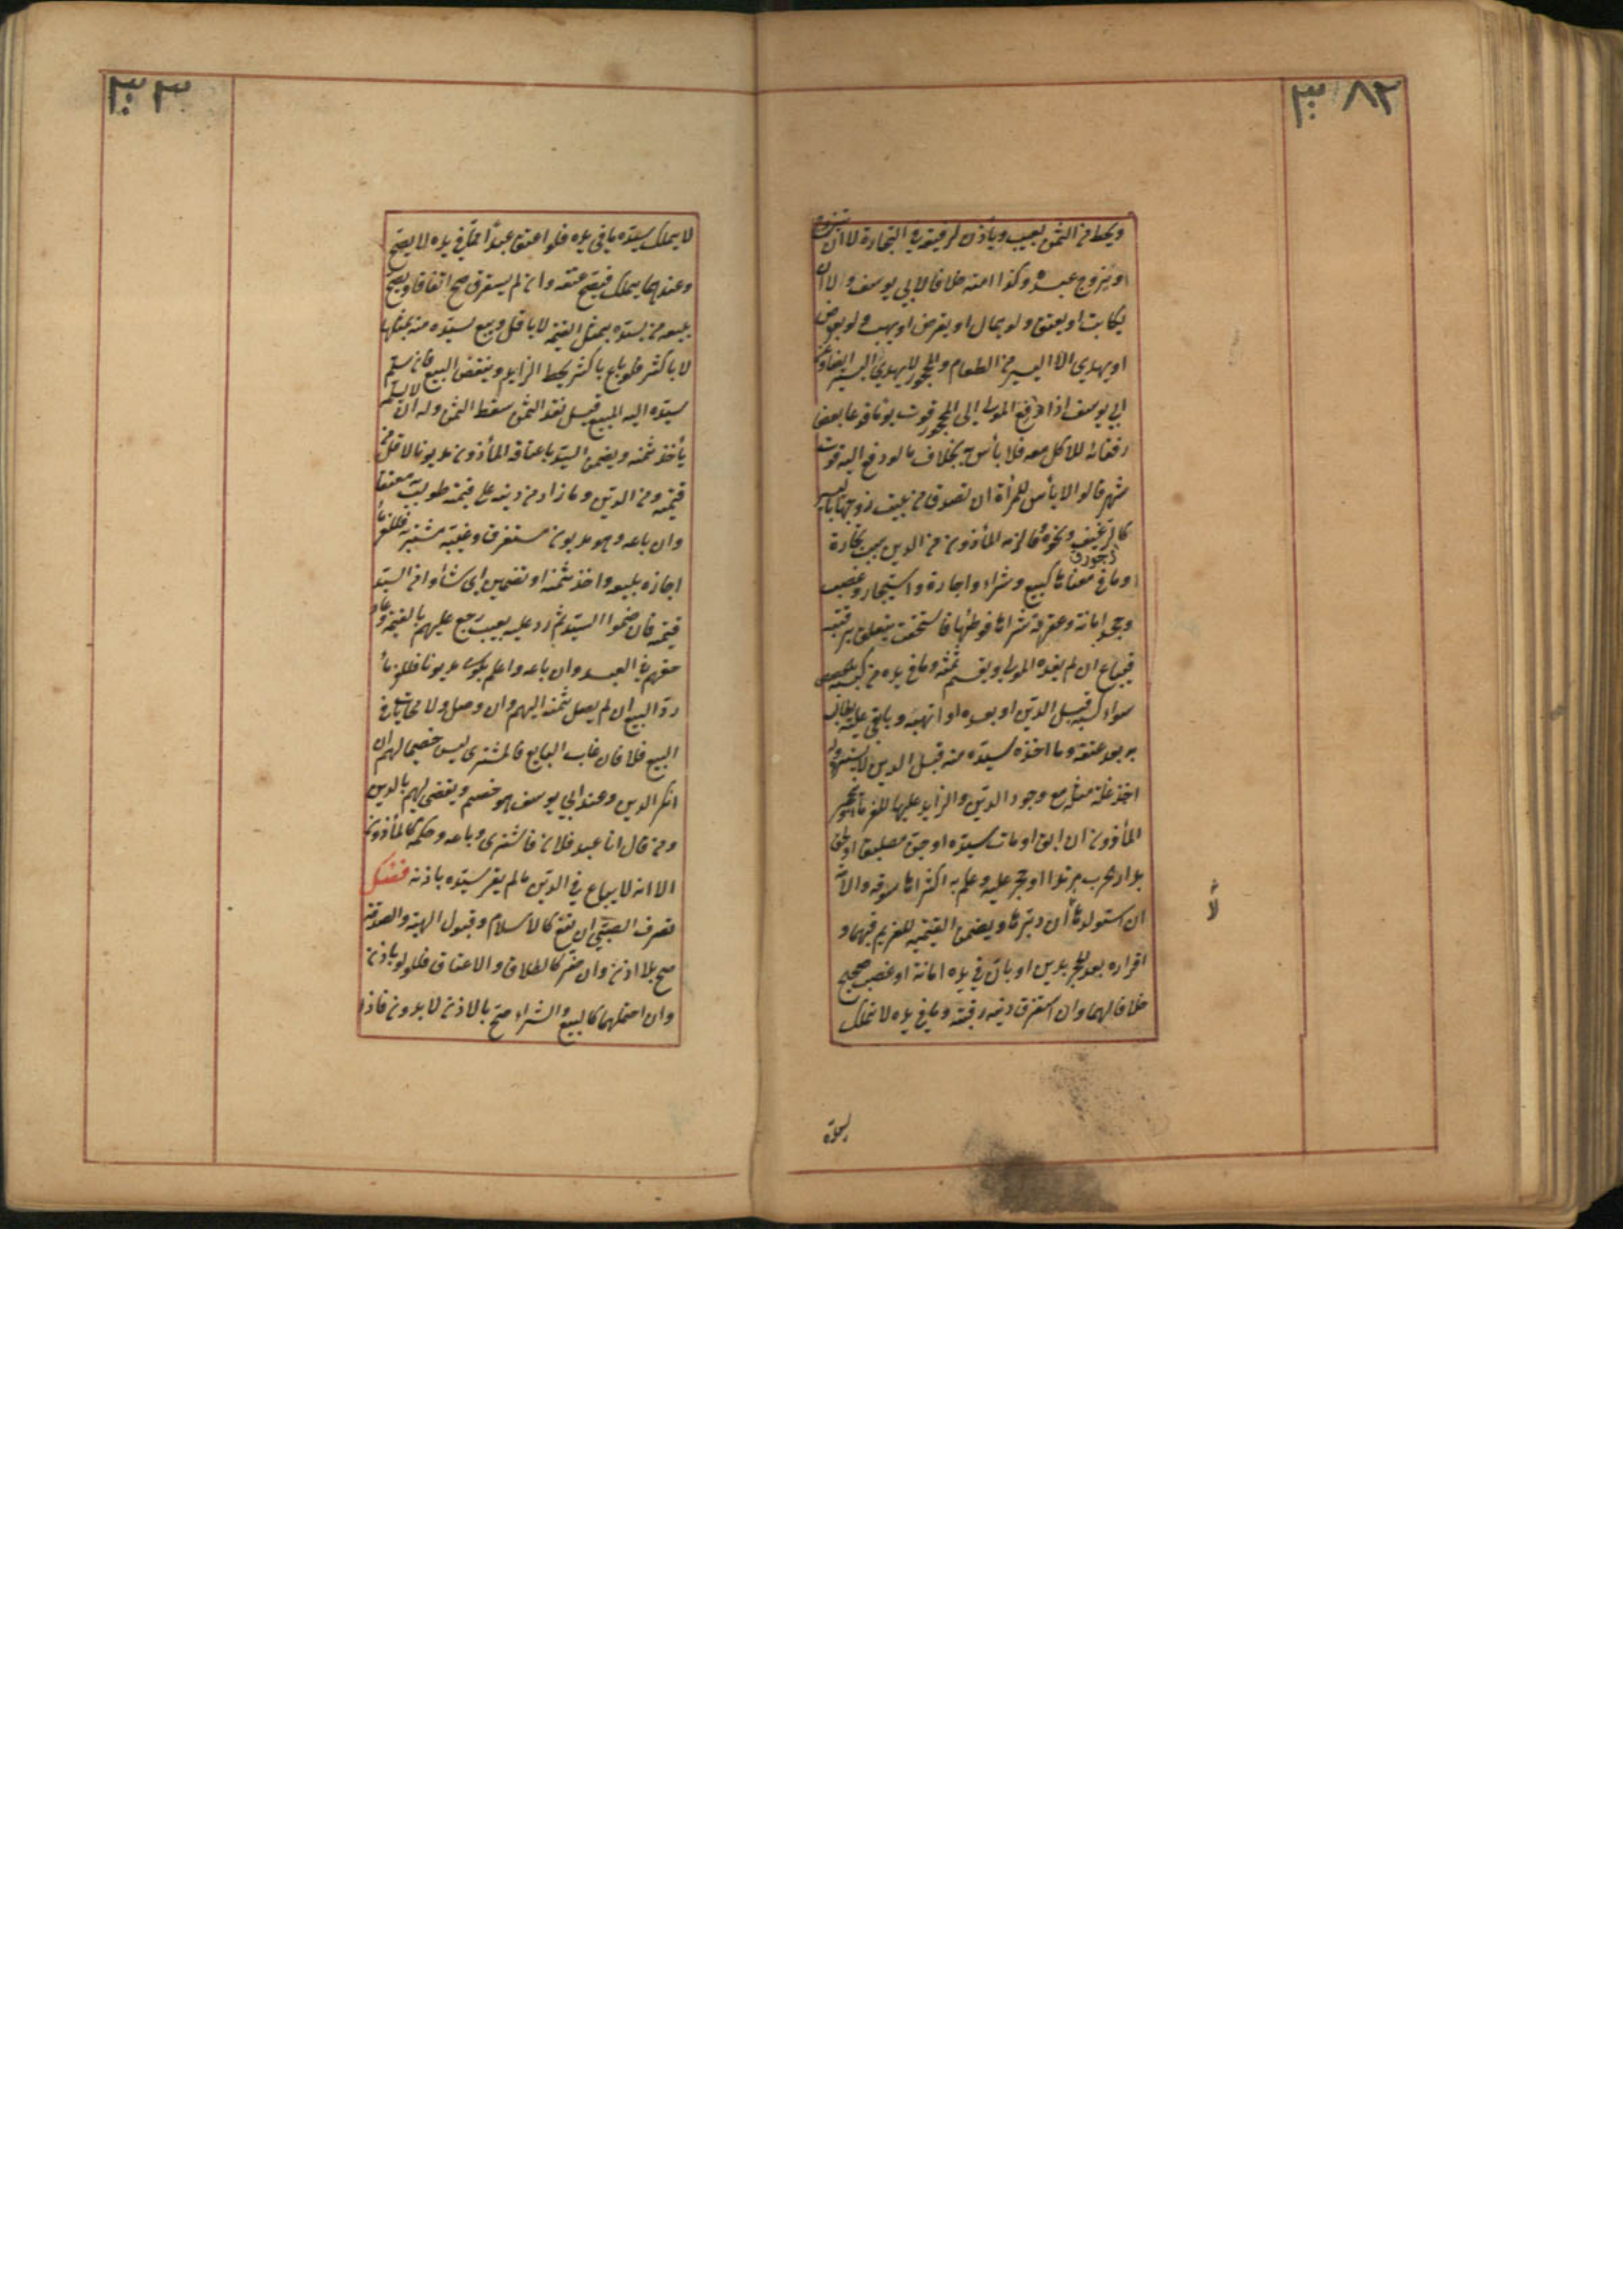 ٣٠٨٢
ويحط من الثمن بعيب ويأذن لرقيقه في التجارة لا ان يتزوج
او يزوج عبده وكذا امته خلافا لابي يوسف والا ان
يكاتب او يعتق ولو بمال او يقرض او يهب ولو بعوض
او يهدي الا اليسير من الطعام والمحجور لا يهدي اليسير ايضا وعن
ابي يوسف اذا دفع المولى الى المحجور قوت يومه فدعا بعض
رفقائه للاكل معه فلا بأس به بخلاف ما لو دفع اليه قوت
شهر قالوا لا بأس للمرأة ان تصدق من بيت زوجها باليسير
كالرغيف ونحوه وما لزم المأذون من الدين بسبب تجارة
او ما في معناها كبيع وشراء واجارة واستيجار وغصب
وجحد امانة وعقر امة شراها فوطئها فاستحقت يتعلق برقبته
فيباع ان لم يفده المولى ويقسم ثمنه وما في يده من كسبه بالحصص
سواء كسبه قبل الدين او بعده او اتهبه وما بقي عليه يطالب
به بعد عتقه وما اخذه سيده منه قبل الدين لا يسترد وله
اخذ غلة مثله مع وجود الدين والزايد عليها للغرماء وينحجر
المأذون ان ابق او مات سيده او جن مطبقا او لحق
بدار الحرب مرتدا او حجر عليه وعلم به اكثر اهل سوقه والامة
ان استولدها لا ان دبرها ويضمن القيمة للغريم فيهما و
اقراره بعد الحجر بدين او بان في يده امانة او غصب صحيح
خلافا لهما وان استغرق دينه رقبته وما في يده لا يملك
٣٠٣
لا يملك سيده ما في يده فلو اعتق عبدا مما في يده لا يصح
وعندهما يملك فيصح عتقه وان لم يستغرق صح اتفاقا ويصح
بيعه من سيده بمثل القيمة لا باقل وبيع سيده منه بمثلها
لا باكثر فلو باع باكثر يحط الزايد وينقض البيع فان سلم
سيده اليه المبيع قبل نقد الثمن سقط الثمن وله ان لا يسلم
يأخذ ثمنه ويضمن السيد باعتاقه المأذون مديونا الاقل من
قيمته ومن الدين وما زاد من دينه على قيمته طولب به معتقا
وان باعه وهو مديون مستغرق وغيبه مشتريه فللغرماء
اجازة بيعه واخذ ثمنه او تضمين اي شاؤا من السيد
قيمته فان ضمنوا السيد ثم رد عليه بعيب رجع عليهم بالقيمة وعاد
حقهم في العبد وان باعه واعلم بكونه مديونا فللغرماء
رد البيع ان لم يصل ثمنه اليهم وان وصل ولا محاباة في
البيع فلا فان غاب البايع فالمشتري ليس خصيما لهم ان
انكر الدين وعند ابي يوسف هو خصم ويقضى لهم بالدين
ومن قال انا عبد فلان فاشترى وباعه وحكمه كالمأذون
الا انه لا يباع في الدين ما لم يقر سيده باذنه فصل
تصرف الصبي ان نفع كالاسلام وقبول الهبة والصدقة
صح بلا اذن وان ضر كالطلاق والاعتاق فلا ولو باذن
وان احتملهما كالبيع والشراء صح بالاذن لا بدونه فاذا